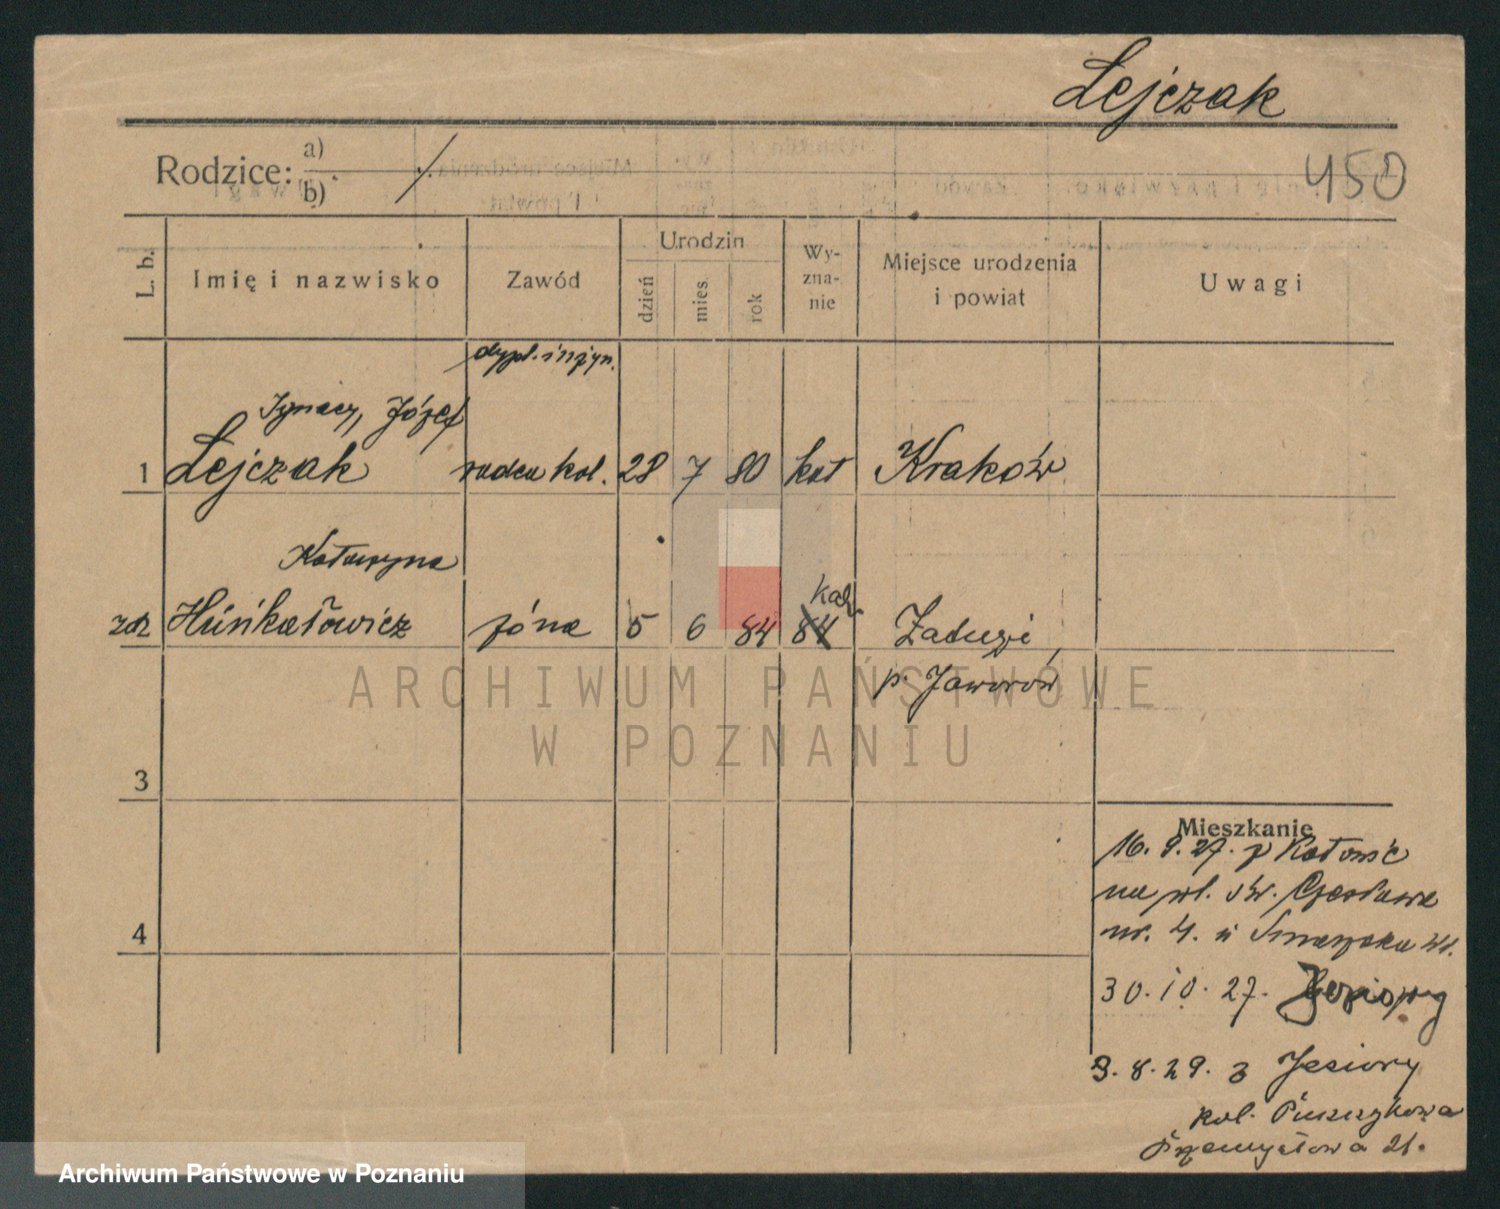 Lejczak
450
Rodzice: a)
b)
L. b. Imię i nazwisko Zawód Urodzin dzień mies. rok Wy-zna-nie Miejsce urodzenia i powiat Uwagi
dypl. inżyn.
Ignacy, Józef
1 Lejczak radca kol. 28 7 80 kat Kraków
Katarzyna
żona 5 6 84 84 kat.
p. Jaworów
3
4
ARCHIWUM PAŃSTWOWE
W POZNANIU
Mieszkanie
16. 9. 27. z Katowic
na wł. św. Czesława
nr. 4. u
30. 10. 27.
3. 8. 29. z Jeziory
kol.
Przemysłowa 21.
Archiwum Państwowe w Poznaniu